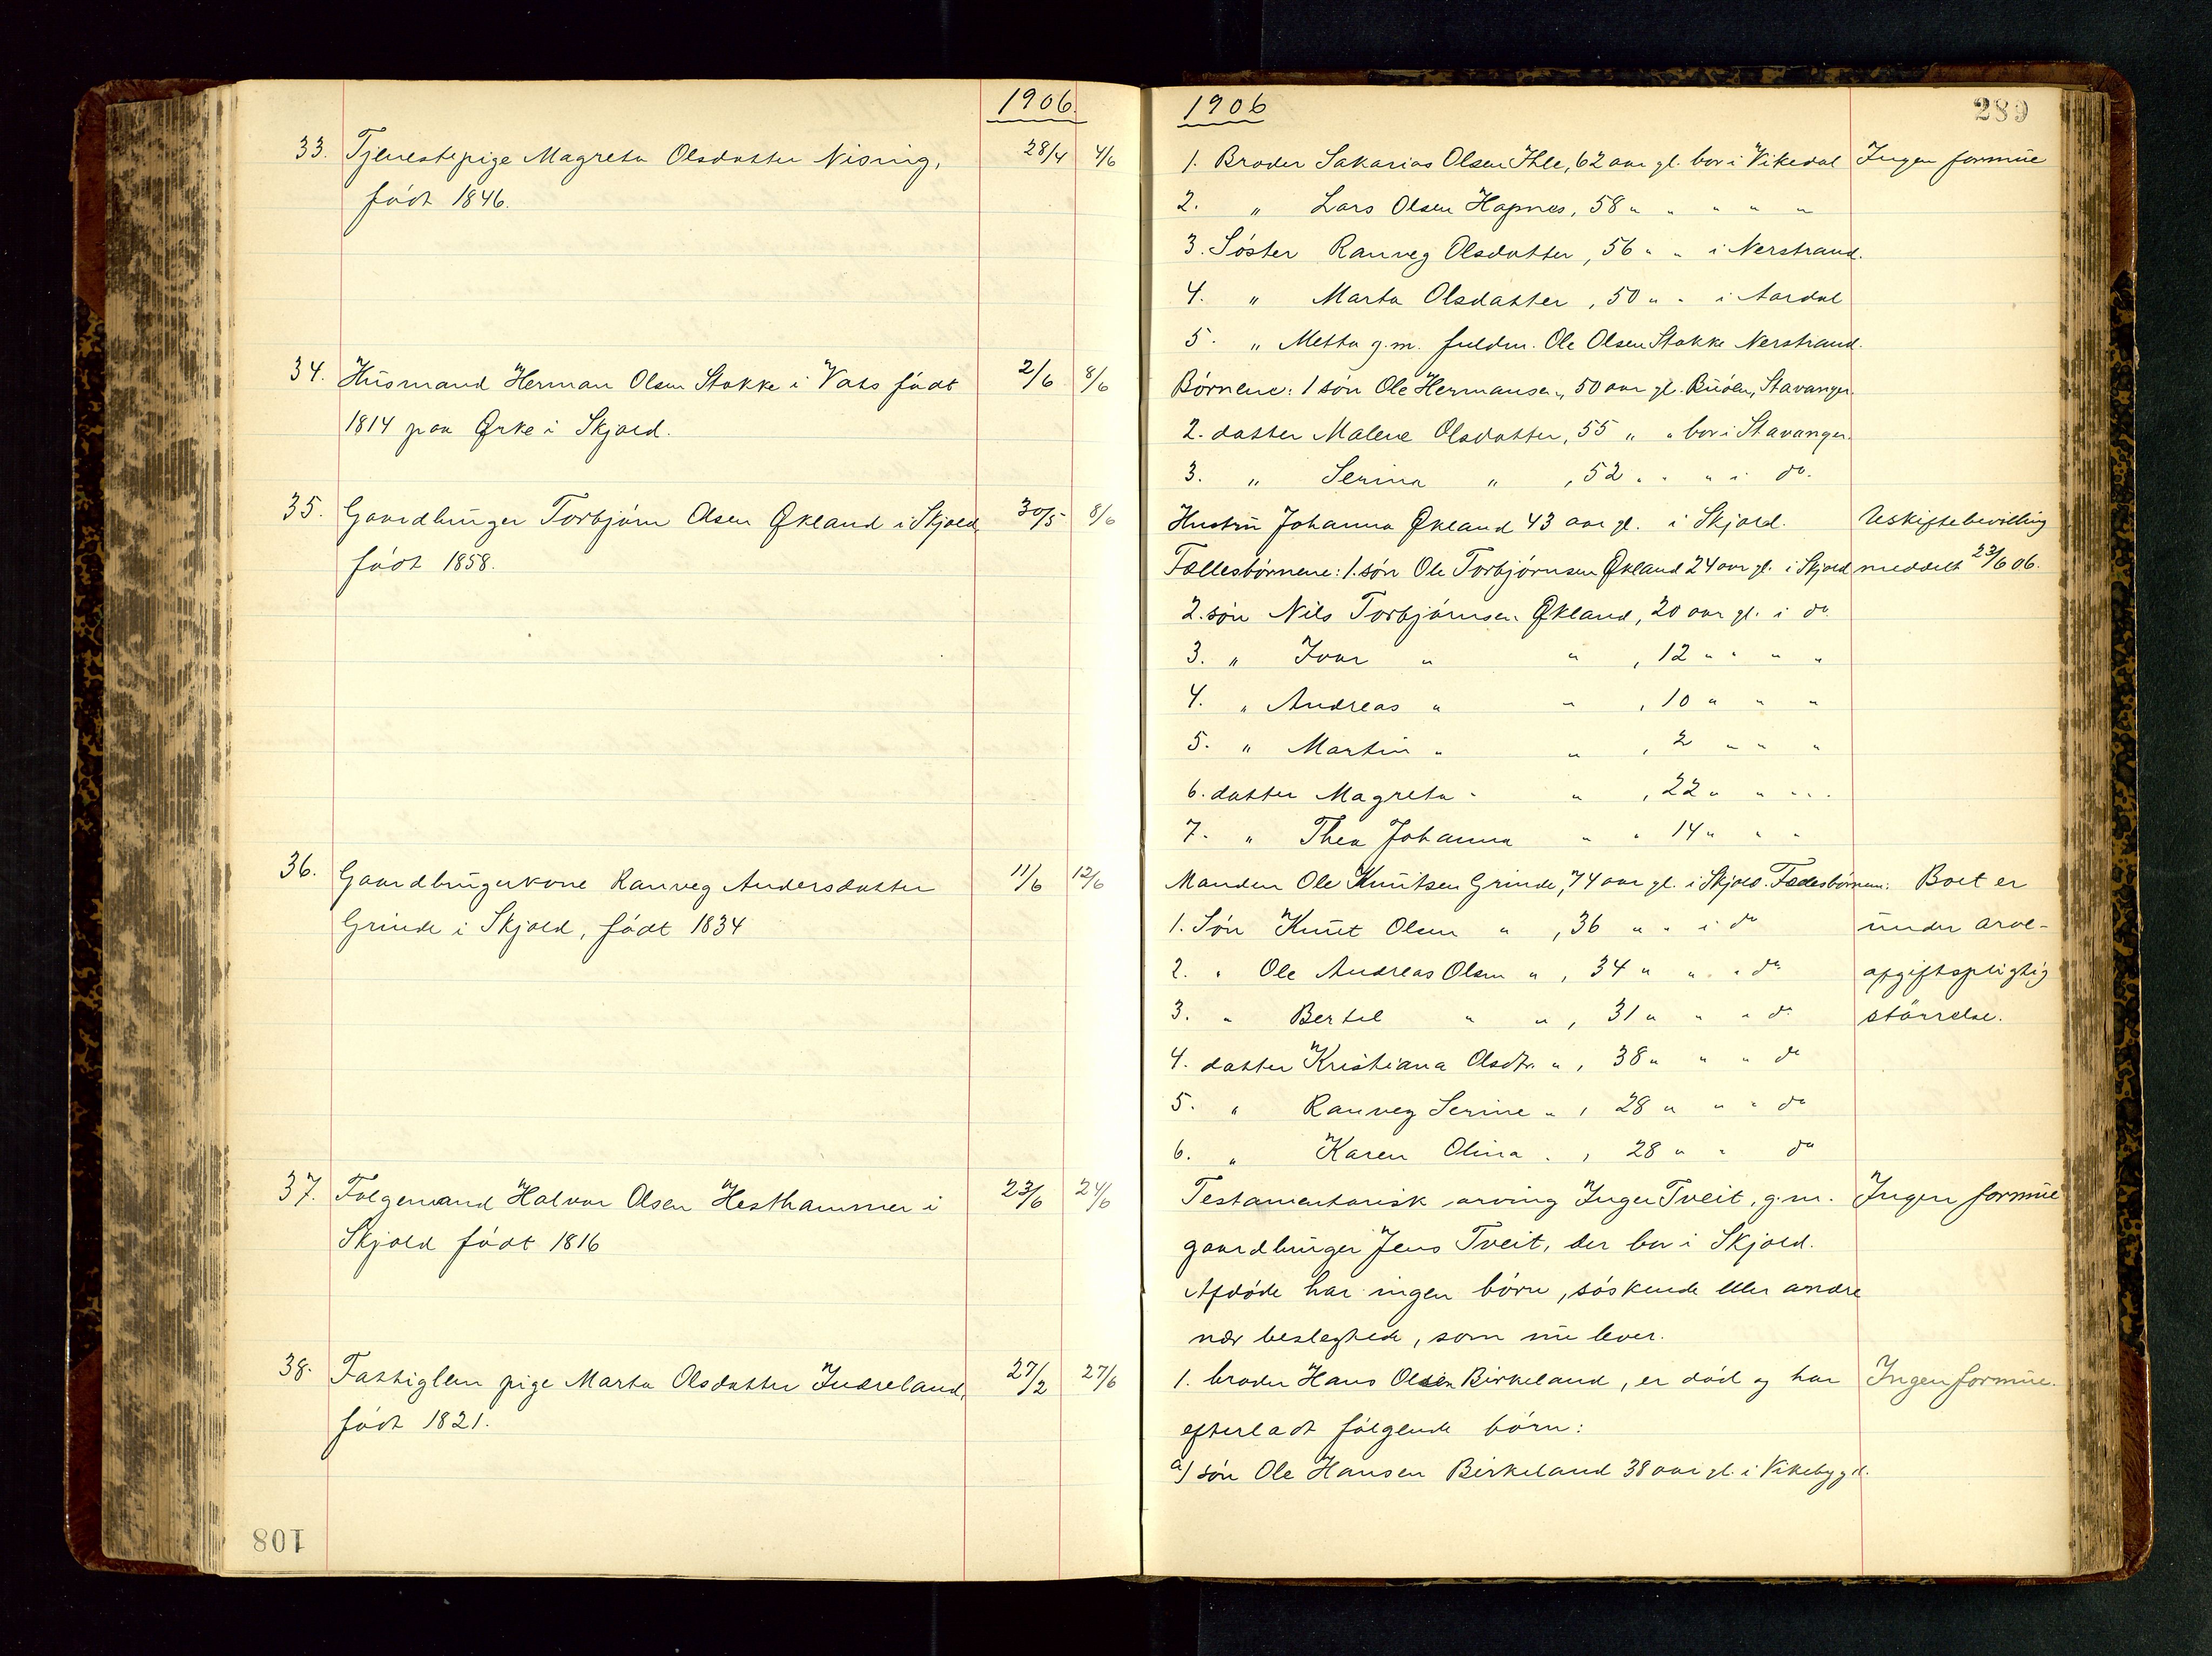 1906.
33. Tjenestepige Magreta Olsdatter Nising, 28/4 4/6
født 1846.
34. Husmand Herman Olsen Stakke i Vats født 2/6 8/6
1814 paa Ørke i Skjold.
35. Gaardbruger Torbjørn Olsen Økland i Skjold, 30/5 8/6
født 1858.
36. Gaardbrugerkone Ranveg Andersdatter 11/6 12/6
Grinde i Skjold, født 1834
37. Følgemand Halvor Olsen Hesthammer i 23/6 24/6
Skjold født 1816
38. Fattiglem pige Marta Olsdatter Indreland, 27/2 27/6
født 1821.
108
1906
289
1. Broder Sakarias Olsen Ihle, 62 aar gl. bor i Vikedal Ingen formue
2. " Lars Olsen Hapnes, 58 " " " " "
3. Søster Ranveg Olsdatter, 56 " " i Nerstrand.
4. " Marta Olsdatter, 50 " " i Aardal
5. " Metta g.m. fuldm. Ole Olsen Stakke Nerstrand.
Børnene: 1 søn Ole Hermansen, 50 aar gl. Buøen, Stavanger.
2. datter Malene Olsdatter, 55 " " bor i Stavanger.
3. " Serina " , 52 " " " i do.
Hustru Johanna Økland 43 aar gl. i Skjold. Uskiftebevilling
Fællesbørnene: 1. søn Ole Torbjørnsen Økland 24 aar gl. i Skjold meddelt 23/6 06.
2. søn Nils Torbjørnsen Økland, 20 aar gl. i do
3. " Ivar " " , 12 " " " "
4. " Andreas " " , 10 " " "
5. " Martin " " , 2 " " "
6. datter Magreta " " , 22 " " " "
7. " Thea Johanna " " 14 " " "
Manden Ole Knutsen Grinde, 74 aar gl. i Skjold. Fællesbørnene: Boet er
1. Søn Knut Olsen " , 36 " " i do under arve-
2. " Ole Andreas Olsen " , 34 " " " do afgiftspligtig
3. " Bertel " " , 31 " " " do størrelse.
4. datter Kristiana Olsdtr. " , 38 " " " do
5. " Ranveg Serine " , 28 " " " do
6. " Karen Olina " , 28 " " do
Testamentarisk arving Inger Tveit, g.m. Ingen formue
gaardbruger Jens Tveit, der bor i Skjold.
Afdøde har ingen børn, søskende eller andre
nær beslegtede, som nu lever.
1. broder Hans Olsen Birkeland, er død og har Ingen formue.
efterladt følgende børn:
a) søn Ole Hansen Birkeland 38 aar gl. i Vikebygd.